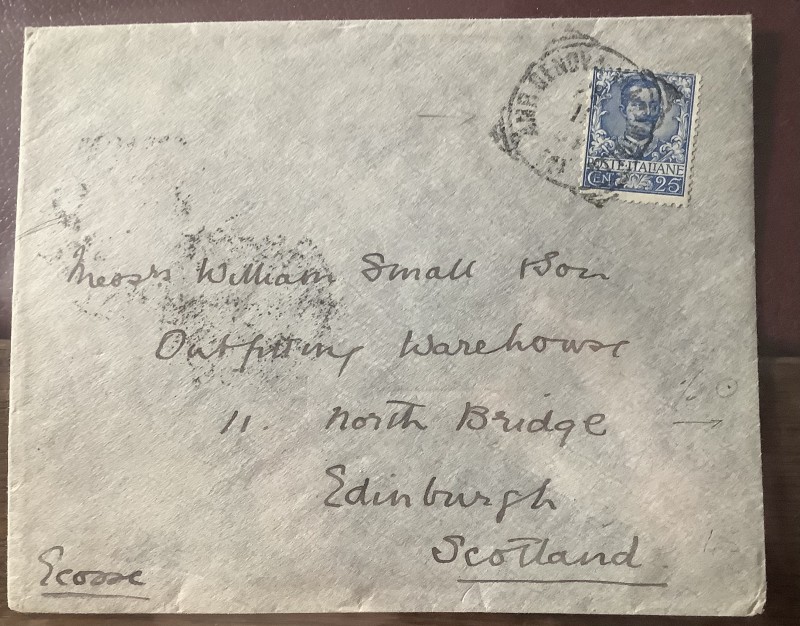 GENOVA
POSTE ITALIANE
CEN 25
Messrs William Small & Son
Outfitting Warehouse
11. North Bridge
Edinburgh
Scotland
Ecosse